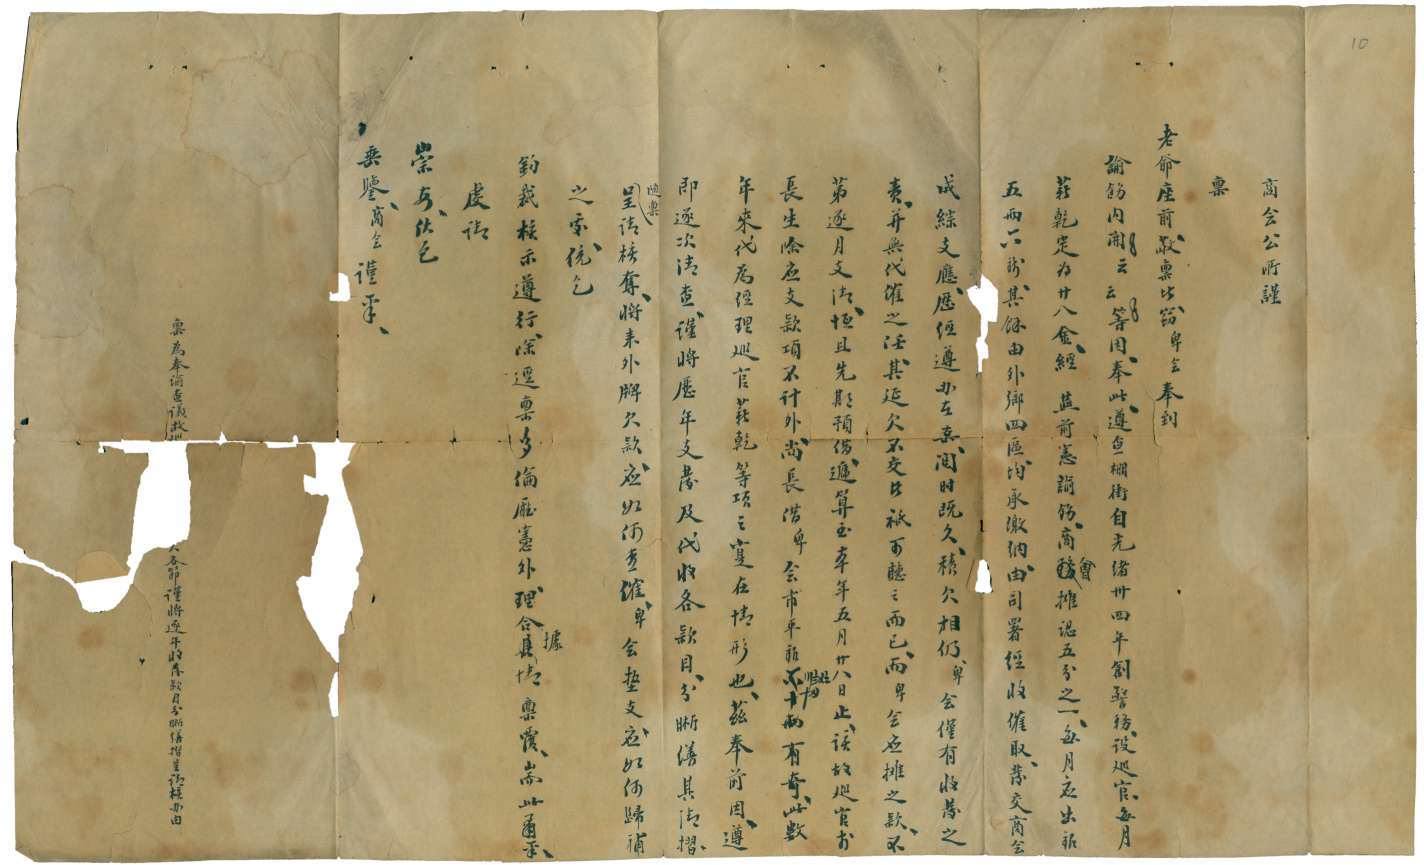 10
商会公所謹
稟
老爺座前敬稟者窃卑会奉到
諭飭内開云云等因奉此遵查柵街自光緒卅四年創警務設巡官每月
薪乾定为廿八金經 并前憲諭飭商會攤認五分之一每月应出銀
五両六錢其餘由外鄉四區均承繳納由司署經收催取發交商会
成綜支應歷經遵办在案閱时既久積欠相仍卑会僅有收發之
责并無代催之任其延欠不交只祇可聽之而已而卑会应攤之款不
第逐月支清恆且先期預借遞算至本年五月廿八日止該故巡官於
長生除应支款項不计外尚長借卑会市平銀 十両有奇此數
年來代为經理巡官薪乾等項之寔在情形也茲奉前因遵
即逐次清查謹將歷年支發及代收各款目分晰繕具清摺
隨稟
呈請核奪將来外牌欠款应如何查催卑会垫支应如何歸補
之䖏統乞
鈞裁核示遵行除逕稟多倫廳憲外理合據情稟覆耑此肅稟
虔請
崇安伏乞
垂鑒商会謹稟
稟为奉諭查議故巡
欠各節謹將逐年收發款目分晰繕摺呈請核办由